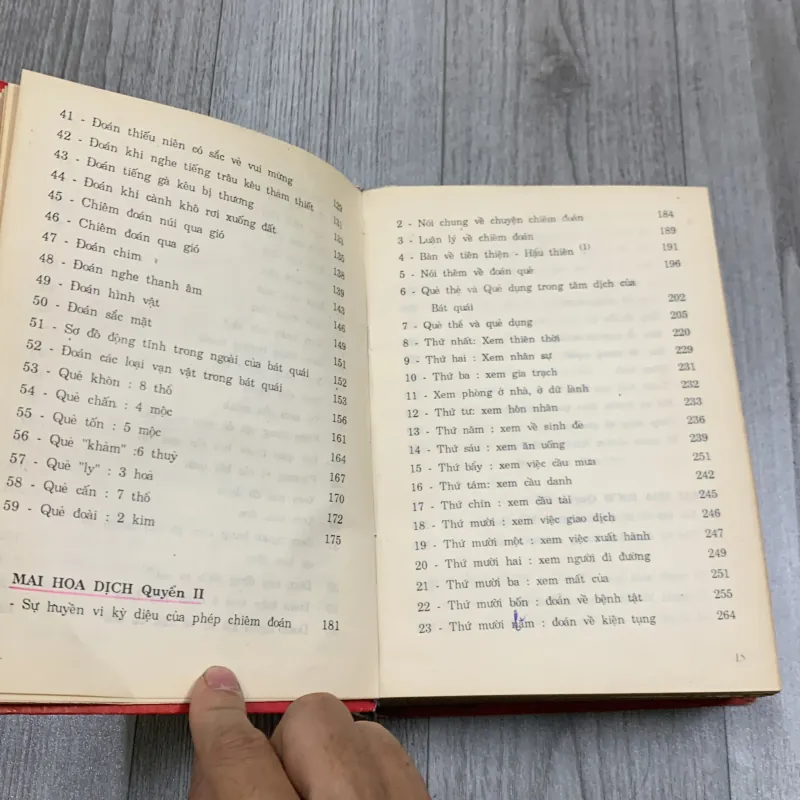 41 - Đoán thiếu niên có sắc vẻ vui mừng 129
42 - Đoán khi nghe tiếng trâu kêu thảm thiết 131
43 - Đoán tiếng gà kêu bị thương 133
44 - Đoán khi cành khô rơi xuống đất 135
45 - Chiêm đoán núi qua gió 138
46 - Chiêm đoán qua gió 139
47 - Đoán chim 143
48 - Đoán nghe thanh âm 146
49 - Đoán hình vật 149
50 - Đoán sắc mặt 151
51 - Sơ đồ động tĩnh trong ngoài của bát quái 152
52 - Đoán các loại vạn vật trong bát quái 153
53 - Quẻ khôn : 8 thổ 156
54 - Quẻ chấn : 4 mộc 161
55 - Quẻ tốn : 5 mộc 164
56 - Quẻ "khảm" :6 thuỷ 167
57 - Quẻ "ly" : 3 hoả 170
58 - Quẻ cấn : 7 thổ 172
59 - Quẻ đoài : 2 kim 175
MAI HOA DỊCH Quyển II
- Sự huyền vi kỳ diệu của phép chiêm đoán 181
2 - Nói chung về chuyện chiêm đoán 184
3 - Luận lý về chiêm đoán 189
4 - Bàn về tiên thiện - Hậu thiên (1) 191
5 - Nói thêm về đoán quẻ 196
6 - Quẻ thể và Quẻ dụng trong tâm dịch của
Bát quái 202
7 - Quẻ thể và quẻ dụng 205
8 - Thứ nhất: Xem thiên thời 220
9 - Thứ hai : Xem nhân sự 229
10 - Thứ ba : xem gia trạch 231
11 - Xem phòng ở nhà, ở dữ lành 232
12 - Thứ tư: xem hôn nhân 233
13 - Thứ năm : xem về sinh đẻ 236
14 - Thứ sáu : xem ăn uống 239
15 - Thứ bẩy : xem việc cầu mưa 251
16 - Thứ tám: xem cầu danh 242
17 - Thứ chín : xem cầu tài 245
18 - Thứ mười : xem việc giao dịch 246
19 - Thứ mười một : xem việc xuất hành 247
20 - Thứ mười hai : xem người đi đường 249
21 - Thứ mười ba : xem mất của 251
22 - Thứ mười bốn : đoán về bệnh tật 255
23 - Thứ mười lăm : đoán về kiện tụng 264